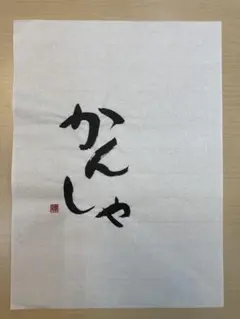 かん
しゃ